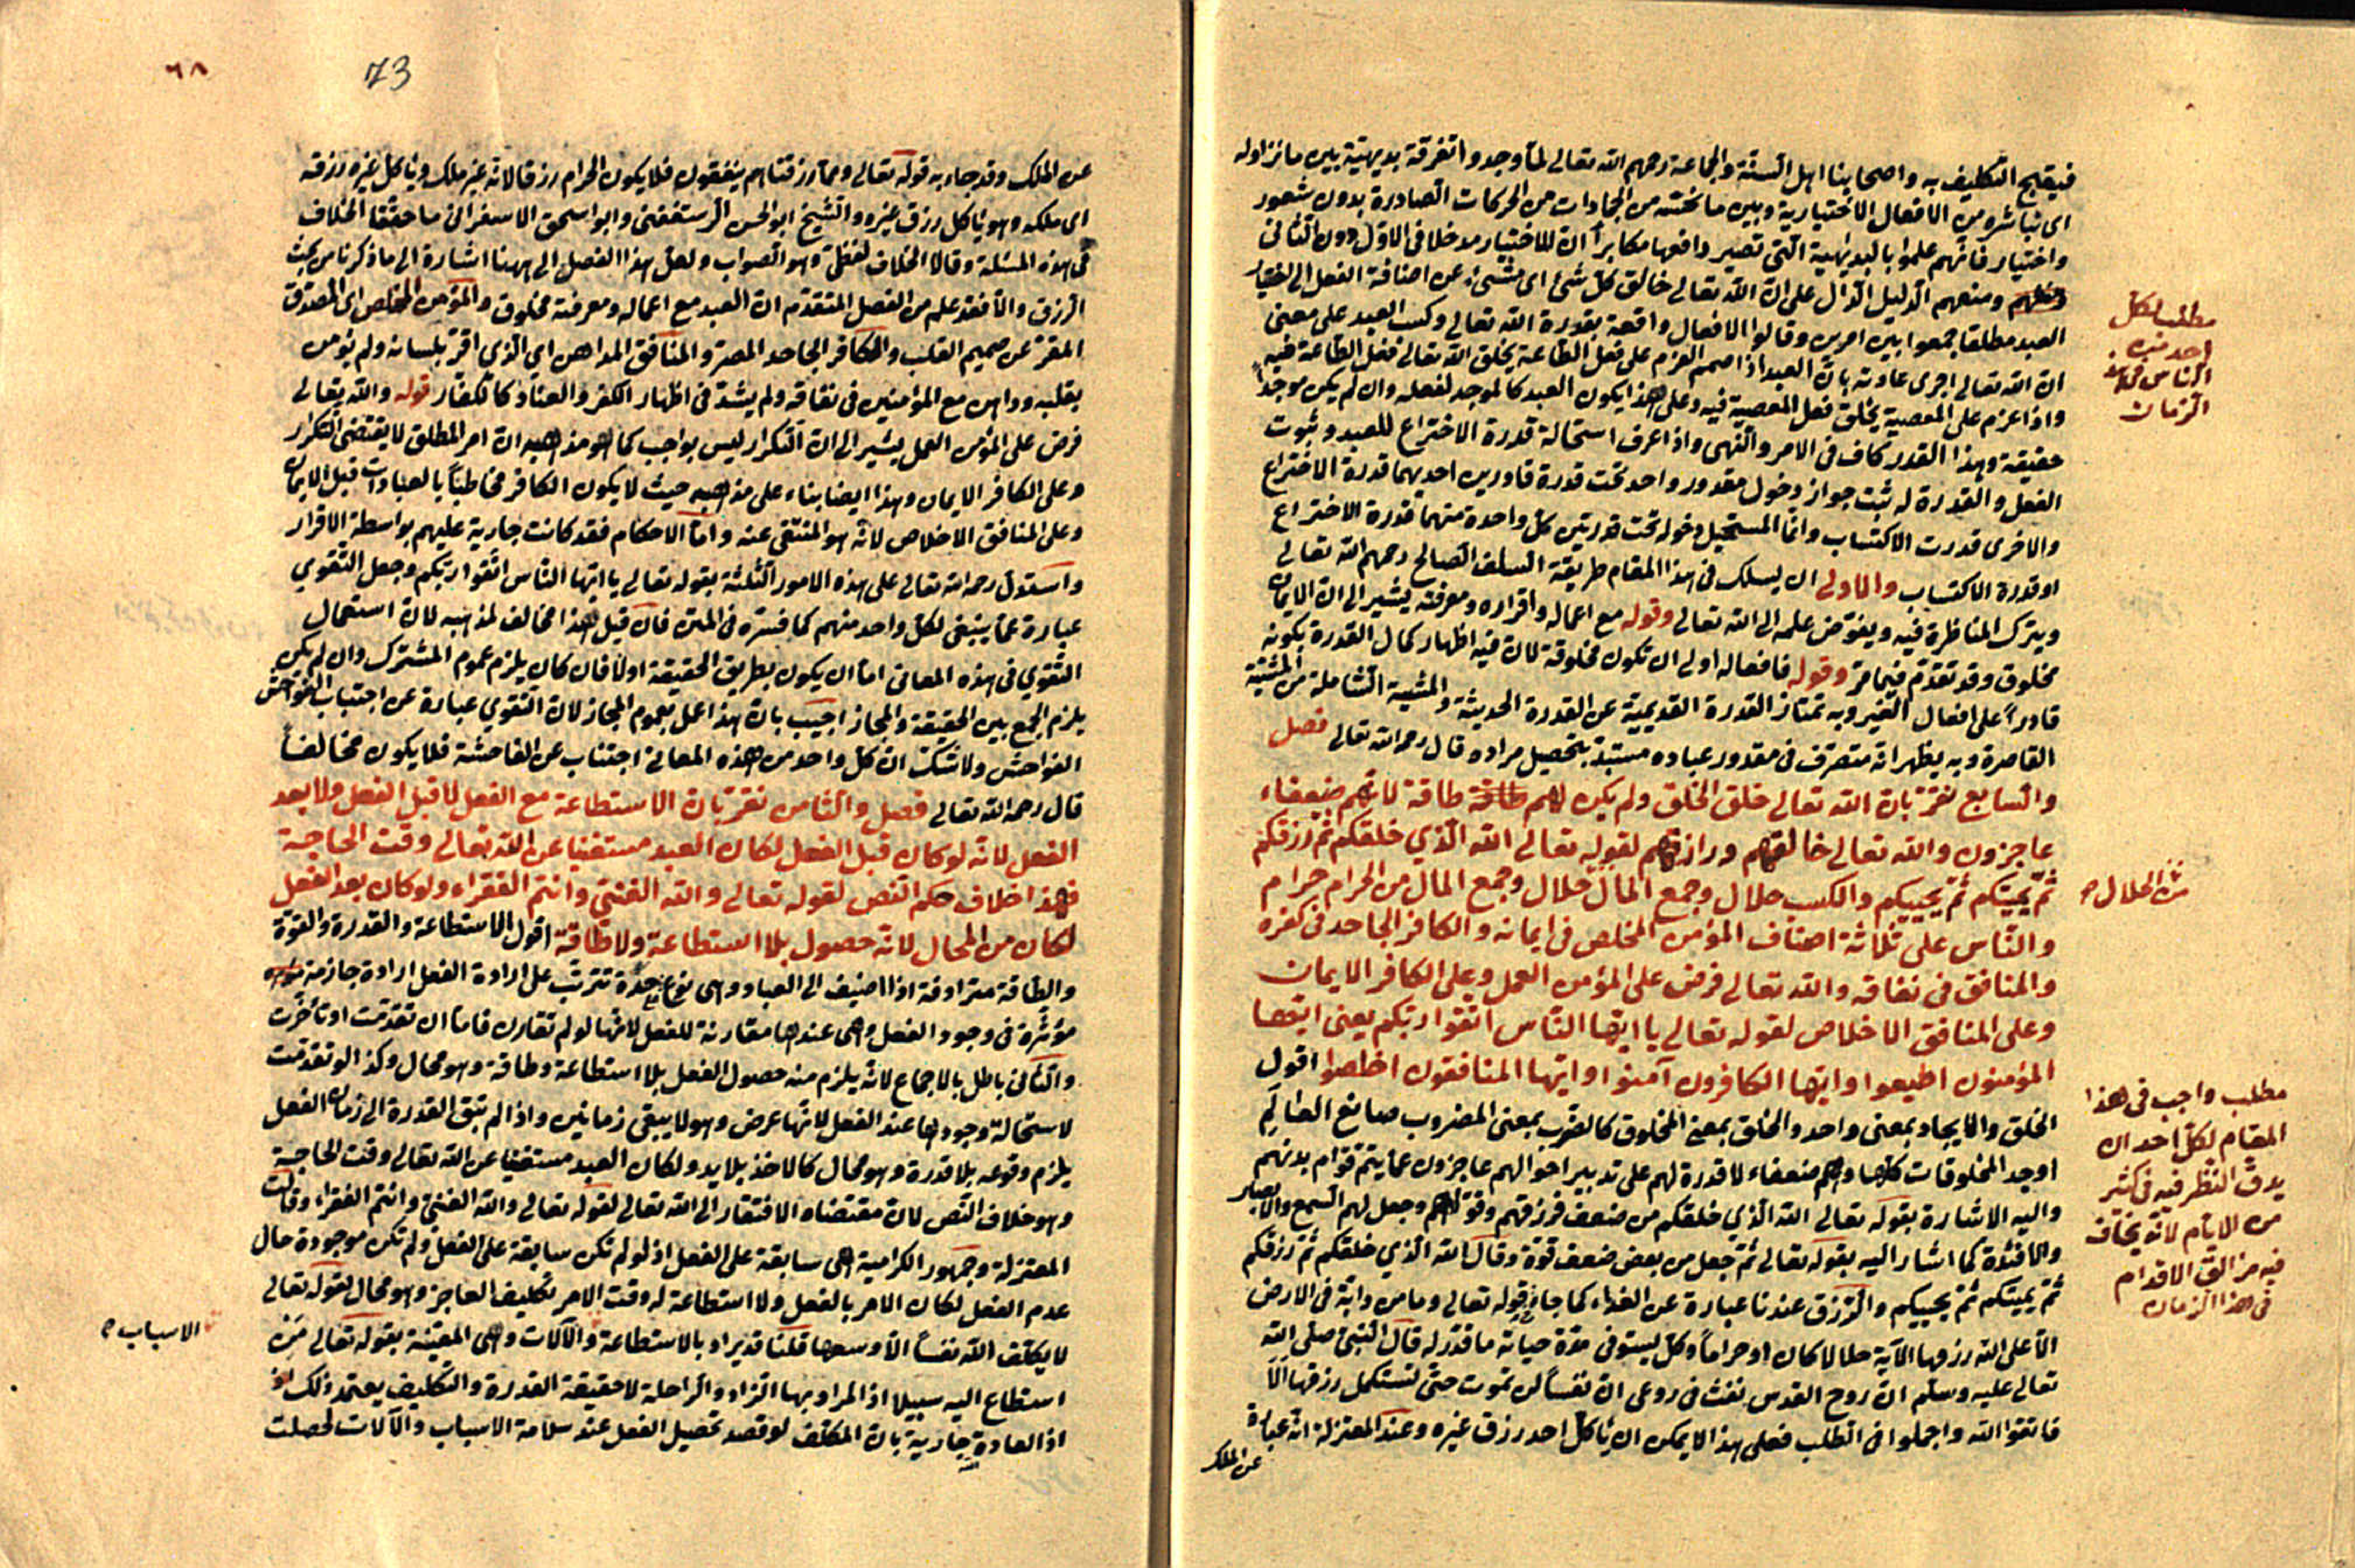 فيقبح التكليف به واصحابنا اهل السنّة والجماعة رحمهم الله تعالى لمّا وجدوا تفرقة بديهيّة بين ما نزاوله
اى نباشره من الافعال الاختيارية وبين ما نحسّه من الجمادات من الحركات الصادرة بدون شعور
واختيار فانّهم علموا بالبديهية الّتى تصير دافعها مكابرا انّ للاختيار مدخلا فى الاوّل دون الثانى
ومنعهم الدليل الدّال على انّ الله تعالى خالق كلّ شئ اى مشيئ عن اضافة الفعل الى اختيار
العبد مطلقا جمعوا بين امرين وقالوا الافعال واقعة بقدرة الله تعالى وكسب العبد على معنى
ان الله تعالى اجرى عادته بانّ العبد اذا صمم العزم على فعل الطّاعة يخلق الله تعالى فعل الطّاعة فيه
واذا عزم على المعصية يخلق فعل المعصية فيه وعلى هذا يكون العبد كالموجد لفعله وان لم يكن موجدا
حقيقة وهذا القدر كاف فى الامر والنّهى واذا عرف استحالة قدرة الاختراع للعبد وثبوت
الفعل والقدرة له ثبت جواز دخول مقدور واحد تحت قدرة قادرين احديهما قدرة الاختراع
والاخرى قدرت الاكتساب وانّما المستحيل دخوله تحت قدرتين كلّ واحدة منهما قدرة الاختراع
او قدرة الاكتساب والاولى ان يسلك فى هذا المقام طريقة السلف الصالح رحمهم الله تعالى
ويترك المناظرة فيه ويفوّض علمه الى الله تعالى وقوله مع اعماله واقراره ومعرفته يشير الى ان الايمان
مخلوق وقد تقدّم فيما مرّ وقوله فافعاله اولى ان تكون مخلوقة لان فيه اظهار كمال القدرة بكونه
قادراً على افعال الغير وبه تمتاز القدرة القديميّة عن القدرة الحديثة والمشية الشاملة من المشيّة
القاصرة وبه يظهر انّه متصرّف فى مقدور عباده مستبدّ بتحصيل مراده قال رحمه الله تعالى فصل
والسابع نقرّ بانّ الله تعالى خلق الخلق ولم يكن لهم طاقة طاقة لانّهم ضعفاء
عاجزون والله تعالى خالقهم ورازقهم لقوله تعالى الله الّذي خلقكم ثمّ رزقكم
ثمّ يميتكم ثمّ يحييكم والكسب حلال وجمع المال حلال وجمع المال من الحرام حرام
والنّاس على ثلاثة اصناف المؤمن المخلص فى ايمانه والكافر الجاحد فى كفره
والمنافق فى نفاقه والله تعالى فرض على المؤمن العمل وعلى الكافر الايمان
وعلى المنافق الاخلاص لقوله تعالى يا ايّها النّاس اتّقوا ربّكم يعنى ايّها
المؤمنون اطيعوا وايّها الكافرون آمنوا وايّها المنافقون اخلصوا اقول
الخلق والايجاد بمعنى واحد والخلق بمعنى المخلوق كالضرب بمعنى المضروب صانع العالم
اوجد المخلوقات كلّها وهم ضعفاء لا قدرة لهم على تدبير احوالهم عاجزون عمّا يتمّ قوام بدنهم
واليه الاشارة بقوله تعالى الله الّذي خلقكم من ضعف فرزقهم وقوّاهم وجعل لهم السمع والابصار
والافئدة كما اشار اليه بقوله تعالى ثمّ جعل من بعض ضعف قوّة وقال الله الّذي خلقكم ثمّ رزقكم
ثمّ يميتكم ثمّ يحييكم والرّزق عندنا عبارة عن الغذاء كما جاء فى قوله تعالى وما من دابّة فى الارض
الّا على الله رزقها الآية حلالا كان او حراماً وكلّ يستوفى مدّة حياته ما قدّر له قال النبىّ صلّى الله
تعالى عليه وسلّم انّ روح القدس نفث فى روعى انّ نفساً لن تموت حتّى تستكمل رزقها الّا
فاتقوا الله واجملوا فى الطلب فعلى هذا لا يمكن ان يأكل احد رزق غيره وعند المعتزلة انّه عبارة
عن الملك
مطلب لكلّ
احد من
النّاس فى هذا
الزمان
من الحلال
مطلب واجب فى هذا
المقام لكلّ احد ان
يدقّ النّظر فيه فى كثير
من الايّام لانّه يخاف
فيه مزالق الاقدام
فى هذا الزمان
٦٨
73
عن الملك وقد جاء به قوله تعالى وممّا رزقناهم ينفقون فلا يكون الحرام رزقا لانّه غير ملك ويأكل غيره رزقه
اى ملكه وهو يأكل رزق غيره والشيخ ابو الحسن الرستغفنى وابو اسحق الاسفرانى ما حقّقا الخلاف
فى هذه المسئلة وقالا الخلاف لفظىّ وهو الصواب ولعلّ هذا الفصل الى ههنا اشارة الى ما ذكرنا من بحث
الرزق والّا فقد علم من الفصل المتقدّم انّ العبد مع اعماله ومعرفته مخلوق والمؤمن المخلص اى المصدّق
المقرّ عن صميم القلب والكافر الجاحد المصرّ والمنافق المداهن اى الّذي اقرّ بلسانه ولم يؤمن
بقلبه وداهن مع المؤمنين فى نفاقه ولم يشدّ فى اظهار الكفر والعناد كالكفّار قوله والله تعالى
فرض على المؤمن العمل يشير الى انّ التّكرار ليس بواجب كما هو مذهبه انّ امر المطلق لا يقتضى التّكرار
وعلى الكافر الايمان وهذا ايضا بناء على مذهبه حيث لا يكون الكافر مخاطباً بالعبادات قبل الايمان
وعلى المنافق الاخلاص لانّه هو المنتفى عنه وامّا الاحكام فقد كانت جارية عليهم بواسطة الاقرار
واستدلّ رحمه الله تعالى على هذه الامور الثّلثة بقوله تعالى يا ايّها النّاس اتّقوا ربّكم وجعل التّقوي
عبارة عمّا ينبغى لكلّ واحد منهم كما فسّره فى المتن فان قيل هذا مخالف لمذهبه لانّ استعمال
التّقوي فى هذه المعانى امّا ان يكون بطريق الحقيقة اولا فان كان يلزم عموم المشترك وان لم يكن
يلزم الجمع بين الحقيقة والمجاز اجيب بانّ هذا عمل بعموم المجاز لانّ التّقوي عبارة عن اجتناب الفواحش
الفواحش ولا شكّ انّ كلّ واحد من هذه المعانى اجتناب عن الفاحشة فلا يكون مخالفاً
قال رحمه الله تعالى فصل والثّامن نقرّ بانّ الاستطاعة مع الفعل لا قبل الفعل ولا بعد
الفعل لانّه لو كان قبل الفعل لكان العبد مستغنيا عن الله تعالى وقت الحاجة
فهذا خلاف حكم النّص لقوله تعالى والله الغنىّ وانتم الفقراء ولو كان بعد الفعل
لكان من المحال لانّه حصول بلا استطاعة ولا طاقة اقول الاستطاعة والقدرة والقوّة
والطّاقة مترادفة اذا اضيف الى العباد وهى نوع حدّة تترتّب على ارادة الفعل ارادة جازمة
مؤثّرة فى وجود الفعل وهى عندها مقارنة للفعل لانّها لو لم تقارن فامّا ان تقدّمت او تأخّرت
والثّانى باطل بالاجماع لانّه يلزم منه حصول الفعل بلا استطاعة وطاقة وهو محال وكذا لو تقدّمت
لاستحالة وجودها عند الفعل لانّها عرض وهو لا يبقى زمانين واذا لم تبق القدرة الى زمان الفعل
يلزم وقوعه بلا قدرة وهو محال كالاخذ بلا يد ولكان العبد مستغنيا عن الله تعالى وقت الحاجة
وهو خلاف النّص لانّ مقتضاه الافتقار الى الله تعالى لقوله تعالى والله الغنىّ وانتم الفقراء وقالت
المعتزلة وجمهور الكراميّة هى سابقة على الفعل اذ لو لم تكن سابقة على الفعل ولم تكن موجودة حال
عدم الفعل لكان الامر بالفعل ولا استطاعة له وقت الامر تكليف العاجز وهو محال لقوله تعالى
لا يكلّف الله نفساً الّا وسعها قلنا قد يراد بالاستطاعة والآلات وهى المعيّنة بقوله تعالى من
استطاع اليه سبيلا اذ المراد بها الزاد والراحلة لا حقيقة القدرة والتّكليف يعتمد ذلك
اذ العادة جارية بانّ المكلّف لو قصد تحصيل الفعل عند سلامة الاسباب والآلات لحصلت
الاسباب